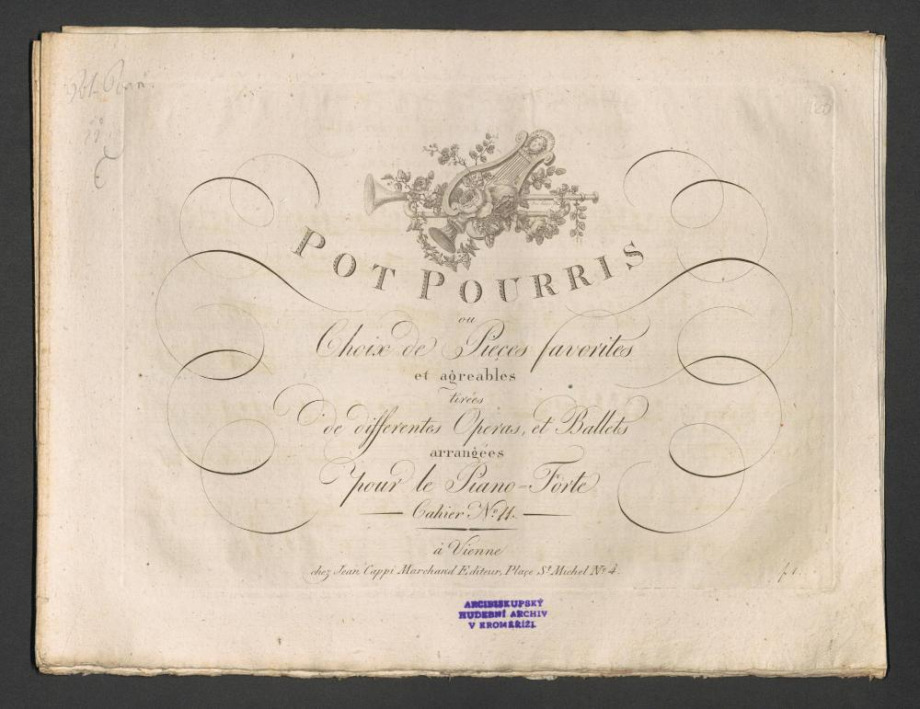 POT POURRIS
ou
Choix de Pieçes favorites
et agreables
tirées
de differentes Operas, et Ballets
arrangées
pour le Piano-Forte
Cahier Nº 11.
à Vienne
chez Jean Cappi Marchand Editeur, Plaçe St. Michel Nº 4.
f 1.
ARCIBISKUPSKÝ
HUDEBNÍ ARCHIV
V KROMĚŘÍŽI.